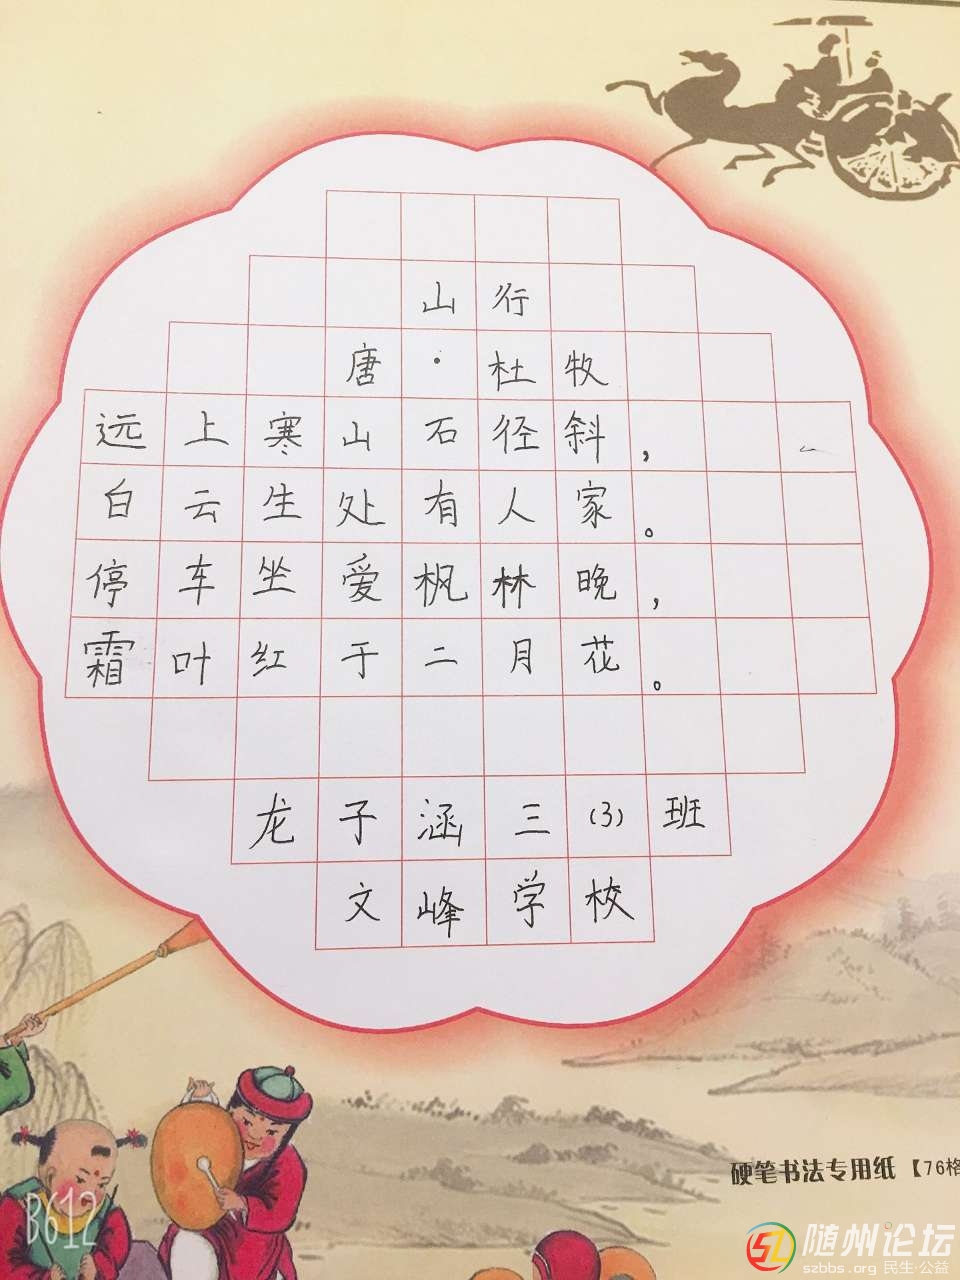 山行
唐·杜牧
远上寒山石径斜，
白云生处有人家。
停车坐爱枫林晚，
霜叶红于二月花。
龙子涵三(3)班
文峰学校
硬笔书法专用纸【76格
B612
随州论坛
szbbs.org 民生·公益